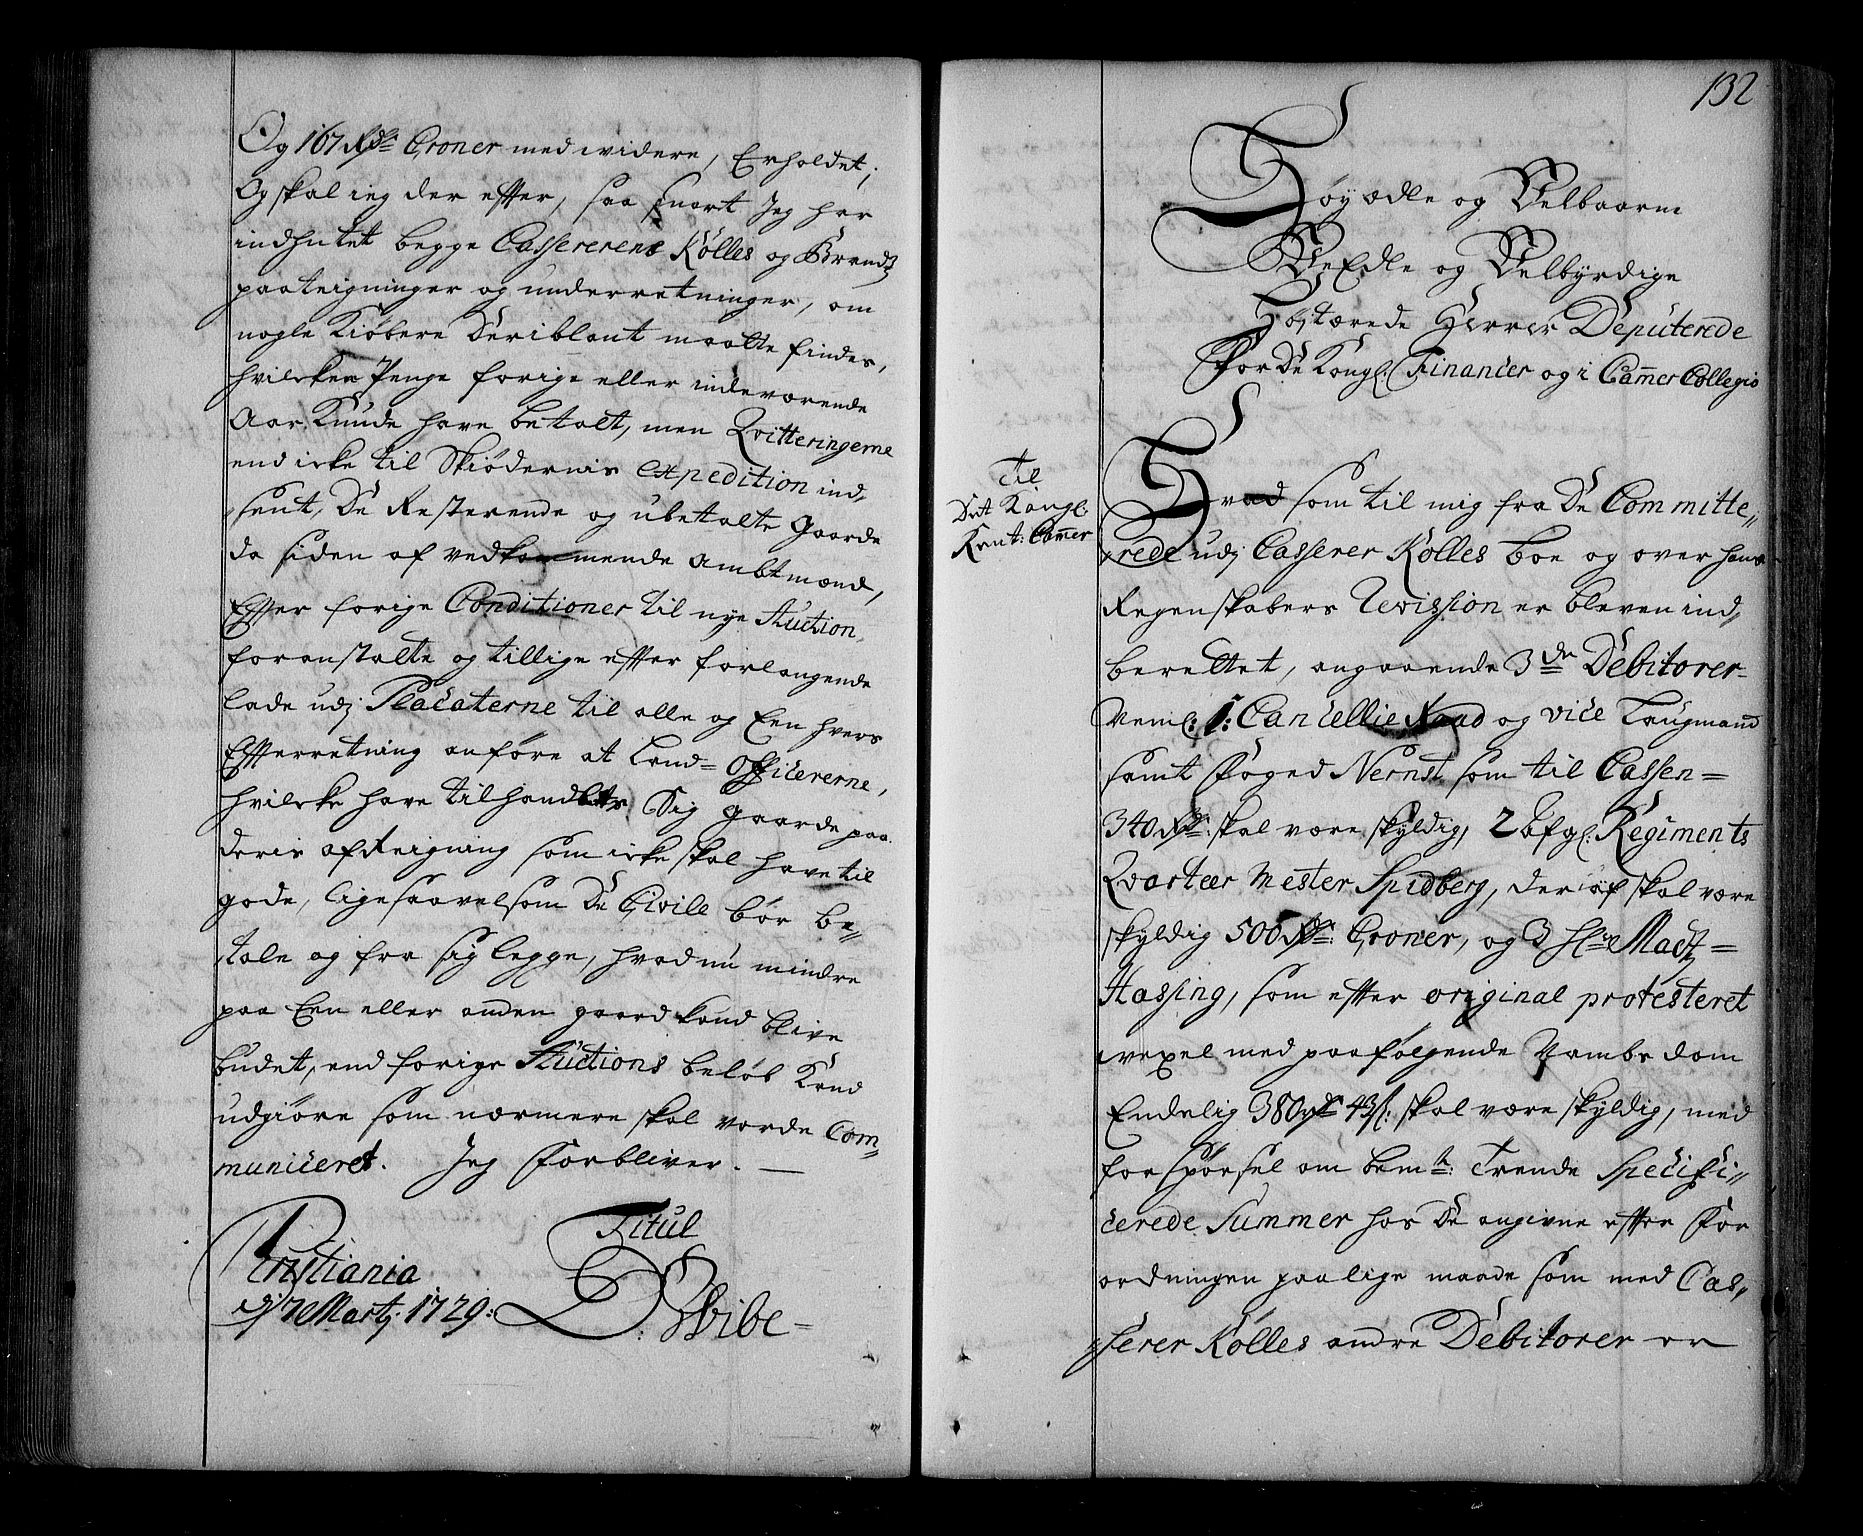 Og 167 Rdr Croner med widere, Erholdet;
Og skal ieg der effter, saa snart Jeg har
indhentet begge Cassererens Kølles og Brandtz
paateigninger og underretninger, om
nogle Kiøbere Deriblant maatte findes,
hvilcken Penge forige eller indeværende
Aar Kunde have betalt, men Qvitteringerne
end icke til Skiødernis expedition ind,,
sent, De Resterende og ubetalte gaarde
da siden af vedkommende Ambtmænd,
Effter forige Conditioner til nye Auction
foranstalte og tillige effter forlangende
lade udj Placaterne til alle og Een hvers
Effterretning anføre at Land= Officererne,
hvilcke have tilhandlet Sig gaarde paa
deris afReigning som icke skal have til
gode, ligesaavelsom De Civile bør be,,
tale og fra sig legge, hvad nu mindre
paa Een eller anden gaard kand blive
budet, end forige Auctions beløb Kand
udgiøre som nærmere skal vorde Com,,
municeret. Jeg Forbliver. —
Titul
Christiania
d 7 Martj: 1729:
D: Wibe=
132
Høyædle og Velbaarne
VelEdle og Velbyrdige
Høystærede Herrer Deputerede
For De Kongl: Financer og i Cammer Collegio
Til
Det Kongl:
Rent: Cammer
Hvad som til mig fra De Committe,,
rede udj Casserer Kølles boe og over hans
Regenskabers Revission er bleven ind,,
berettet, angaaende 3de Debitorer
Neml: 1: Cancellie Raad og vice Laugmand
samt Foged Nernst som til Cassen=
340 Rdr: skal være skyldig, 2 bfgl: Regiments
Qvarteer Mester Spidberg, der iøf skal være
skyldig 506 Rdr: Croner, og 3 Hr Madtz=
Hassing, som effter original protesteret
wexel med paafølgende Vambs dom
Endelig 380 rdr 43 s: skal være skyldig, med
forspørsel om bemte: Trende Specifi,,
cerede Summer hos De angivne effter For
ordningen paa lige maade som med Cas,,
serer Kølles andre Debitorer er